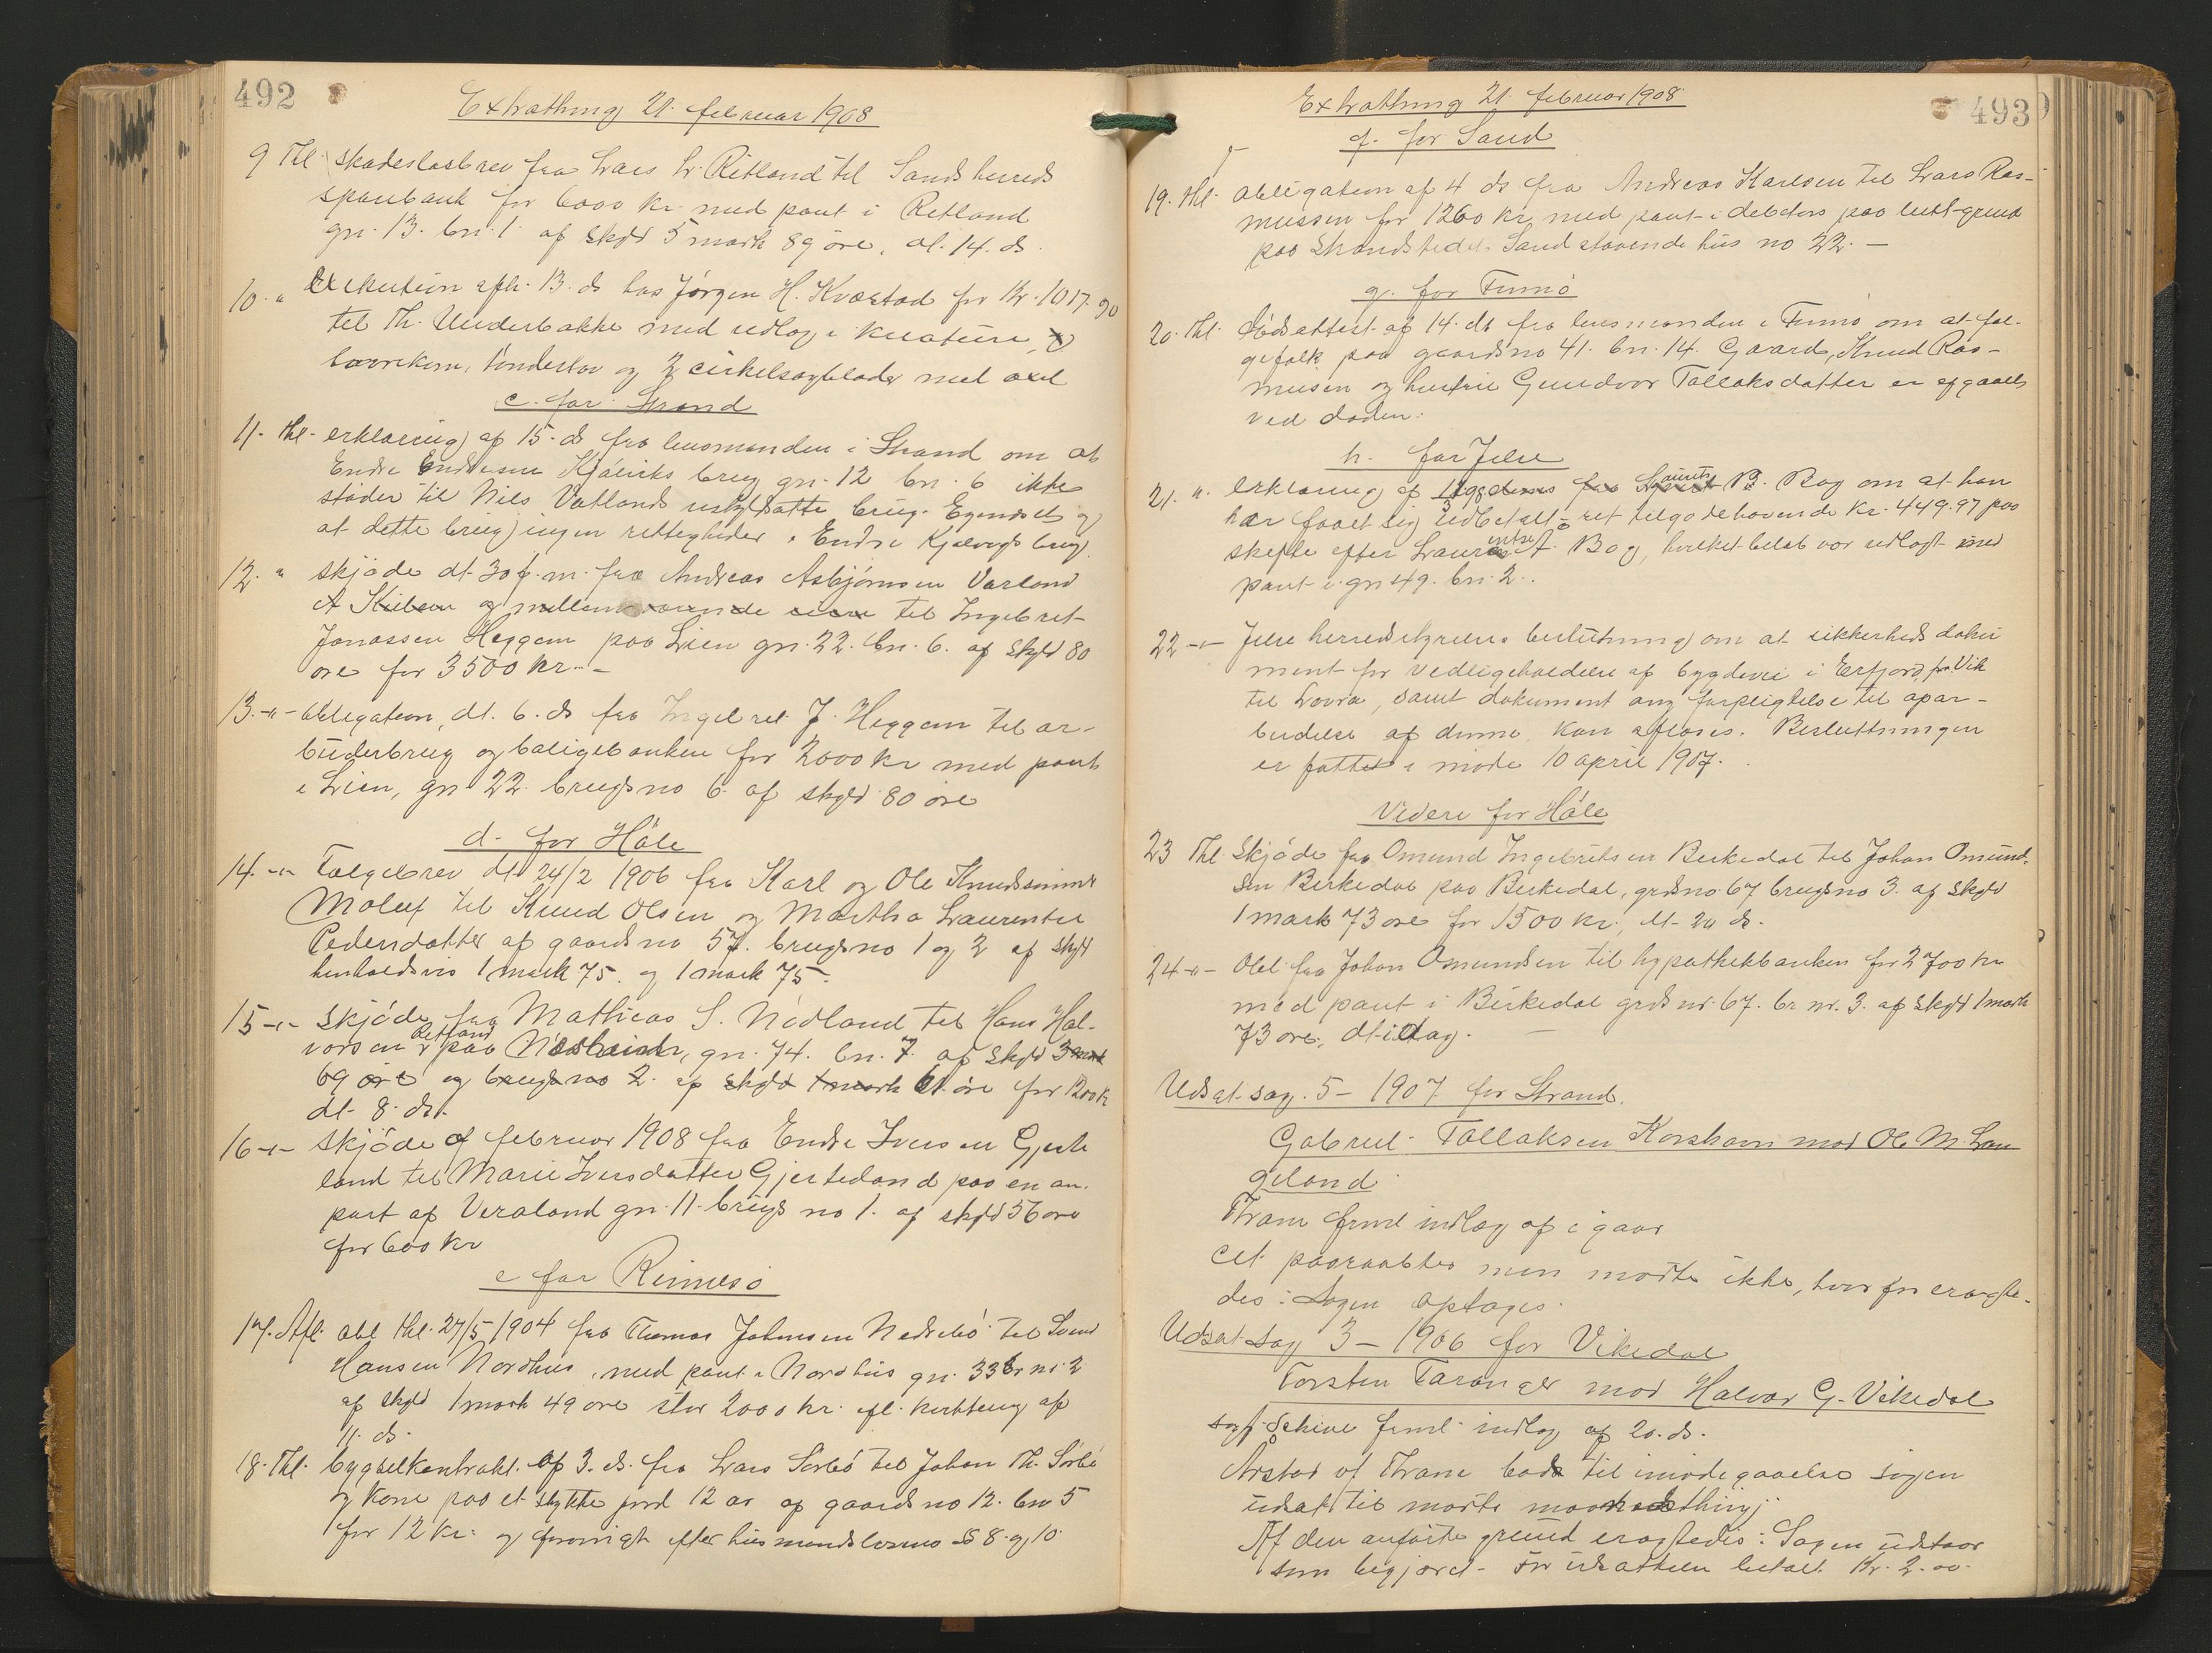 492
Extrathing 21. februar 1908
9 Thl. Skadesløsbrev fra Lars L. Retland til Sands herreds
sparebank for 6000 kr. med pant i Retland
gn. 13. bn. 1. af skyld 5 mark 89 øre, dt. 14. ds.
10. " Exekution afh. 13. ds hos Jørgen H. Kvæstad for kr. 1017.90
til Th. Underbakke med udlæg i
og 2 cirkelsagblade med axel
c. for Strand
11. thl. erklæring af 15. ds fra lensmanden i Strand om at
Endre Endresen Kjølviks brug gn. 12 bn. 6 ikke
støder til Nils Vatlands uskyldsatte brug. Egenes og
at dette brug ingen rettigheder i Endre Kjølvigs brug.
12. " skjøde dt. 30 f. m. fra Andreas Asbjørnsen Varland
til Ingebret
Jonassen Heggem paa Lien gn. 22. bn. 6. af skyld 80
øre for 3500 kr. -
13. -"- obligation, dt. 6. ds fra Ingebret J. Heggem til ar-
beiderbrug og boligbanken for 2000 kr med pant
i Lien, gn 22. brugs no 6. af skyld 80 øre
d. for Høle
14. -"- Følgebrev dt 24/2 1906 fra Karl og Ole Knudssønner
Maluf til Knud Olsen og Martha Laurentse
Pedersdatter af gaards no 57. brugs no 1 og 2 af skyld
henholdsvis 1 mark 75. og 1 mark 75.
15 -"- skjøde fra Mathias S. Nødland til Hans Hal-
vorsen Retland paa gn. 74. bn. 7. af skyld 3 mark
69 øre og brugs no 2. af skyld 1 mark 61 øre for 1200 kr
dt. 8. ds.
16 -"- skjøde af februar 1908 fra Endre Iversen Gjerte
land til Marie Iversdatter Gjerteland paa en an-
part af Veraland gn. 11. brugs no 1. af skyld 56 øre
for 600 kr
e for Rennesø
17. Afl. obl. thl. 27/5 1904 fra Thomas Johnsen Nedrebø til Svend
Hansen Nordhus, med pant i Nordhus gn. 33 br nr. 2
af skyld 1 mark 49 øre stor 2000 kr. efl. kvittering af
11. ds.
18. Thl. bygselkontrakt af 3. ds. fra Lars Sørbø til Johan Th. Sørbø
og kone paa et stykke jord 12 ar af gaards no 12. bn 5
for 12 kr. og forøvrigt efter husmandslovens §§ 8. og 10.
493
Extrathing 21. februar 1908
f. for Sand
19. thl. obligation af 4 ds fra Andreas Karlsen til Lars Ras-
mussen for 1260 kr, med pant i debitors paa leiet grund
paa Strandstedet Sand staaende hus no 22. -
g. for Finnø
20. Thl. Dødsattest af 14. ds fra lensmanden i Finnø om at føl-
gefolk paa gaards no 41. bn. 14. Gaard, Knud Ras-
musen og hustru Gundvor Tollaksdatter er afgaaet
ved døden.
h. for Jelse
21. ". Erklæring af B. Bog om at han
har faaet sig udbetalt ret tilgodehavende kr. 449.97 paa
skifte efter A. Bog, hvilket beløb var udlagt med
pant i gn 49. bn. 2.
22 -"- Jelse herredsstyrelses beslutning om at sikkerheds doku
ment for vedligeholdelse af bygdevei i Erfjord, fra Vik
til Lovra, samt dokument ang. forpligtelse til opar-
beidelse af denne kan afløses. Beslutningen
er fattet i møde 10 april 1907.
Videre for Høle
23 Thl. Skjøde fra Omund Ingebretsen Berkedal til Johan Omund-
sen Berkedal paa Berkedal, grds no. 67 brugs no 3. af skyld
1 mark 73 øre for 1500 kr., dt. 20 ds.
24 -"- Obl. fra Johan Omundsen til hypothekbanken for 2700 kr
med pant i Birkedal grds nr. 67. br nr. 3. af skyld 1 mark
73 øre, dt. idag. -
Udsat sag. 5 - 1907 for Strand.
Gabriel Tollaksen Korshavn mod Ole M. Lan
geland
Thrane freml. indlæg af igaar
Cit. paaraabtes men mødte ikke, hvorfor eragte-
des: Sagen optages.
Udsat sag 3 - 1906 for Vikedal
Torsten Taranger mod Halvor G. Vikedal
sagf. Schive freml. indlæg af 20. ds.
Årstad of Thrane bad til imødegaaelse sagen
udsat til marts maanedsthing.
Af den anførte grund eragtedes: Sagen udstaar
som begjært. For udsættelse betalt kr. 2.00.